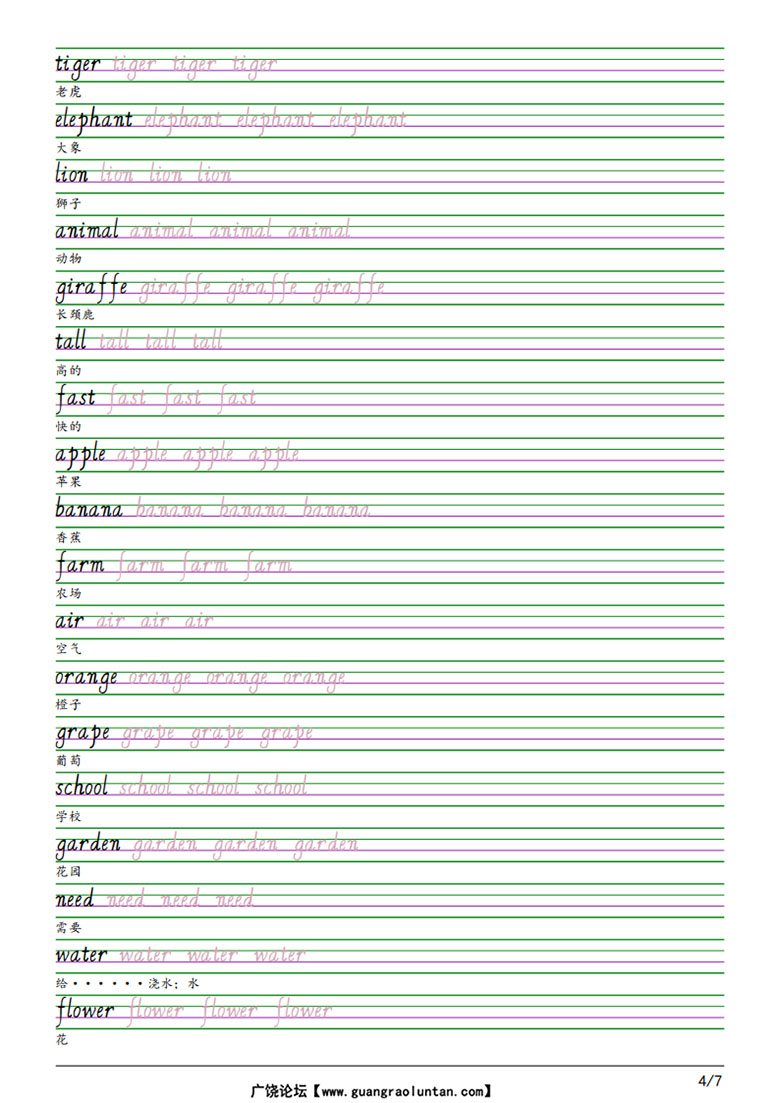 tiger tiger tiger tiger
老虎
elephant elephant elephant elephant
大象
lion lion lion lion
狮子
animal animal animal animal
动物
giraffe giraffe giraffe giraffe
长颈鹿
tall tall tall tall
高的
fast fast fast fast
快的
apple apple apple apple
苹果
banana banana banana banana
香蕉
farm farm farm farm
农场
air air air air
空气
orange orange orange orange
橙子
grape grape grape grape
葡萄
school school school school
学校
garden garden garden garden
花园
need need need need
需要
water water water water
给······浇水；水
flower flower flower flower
花
4/7
广饶论坛【www.guangraoluntan.com】